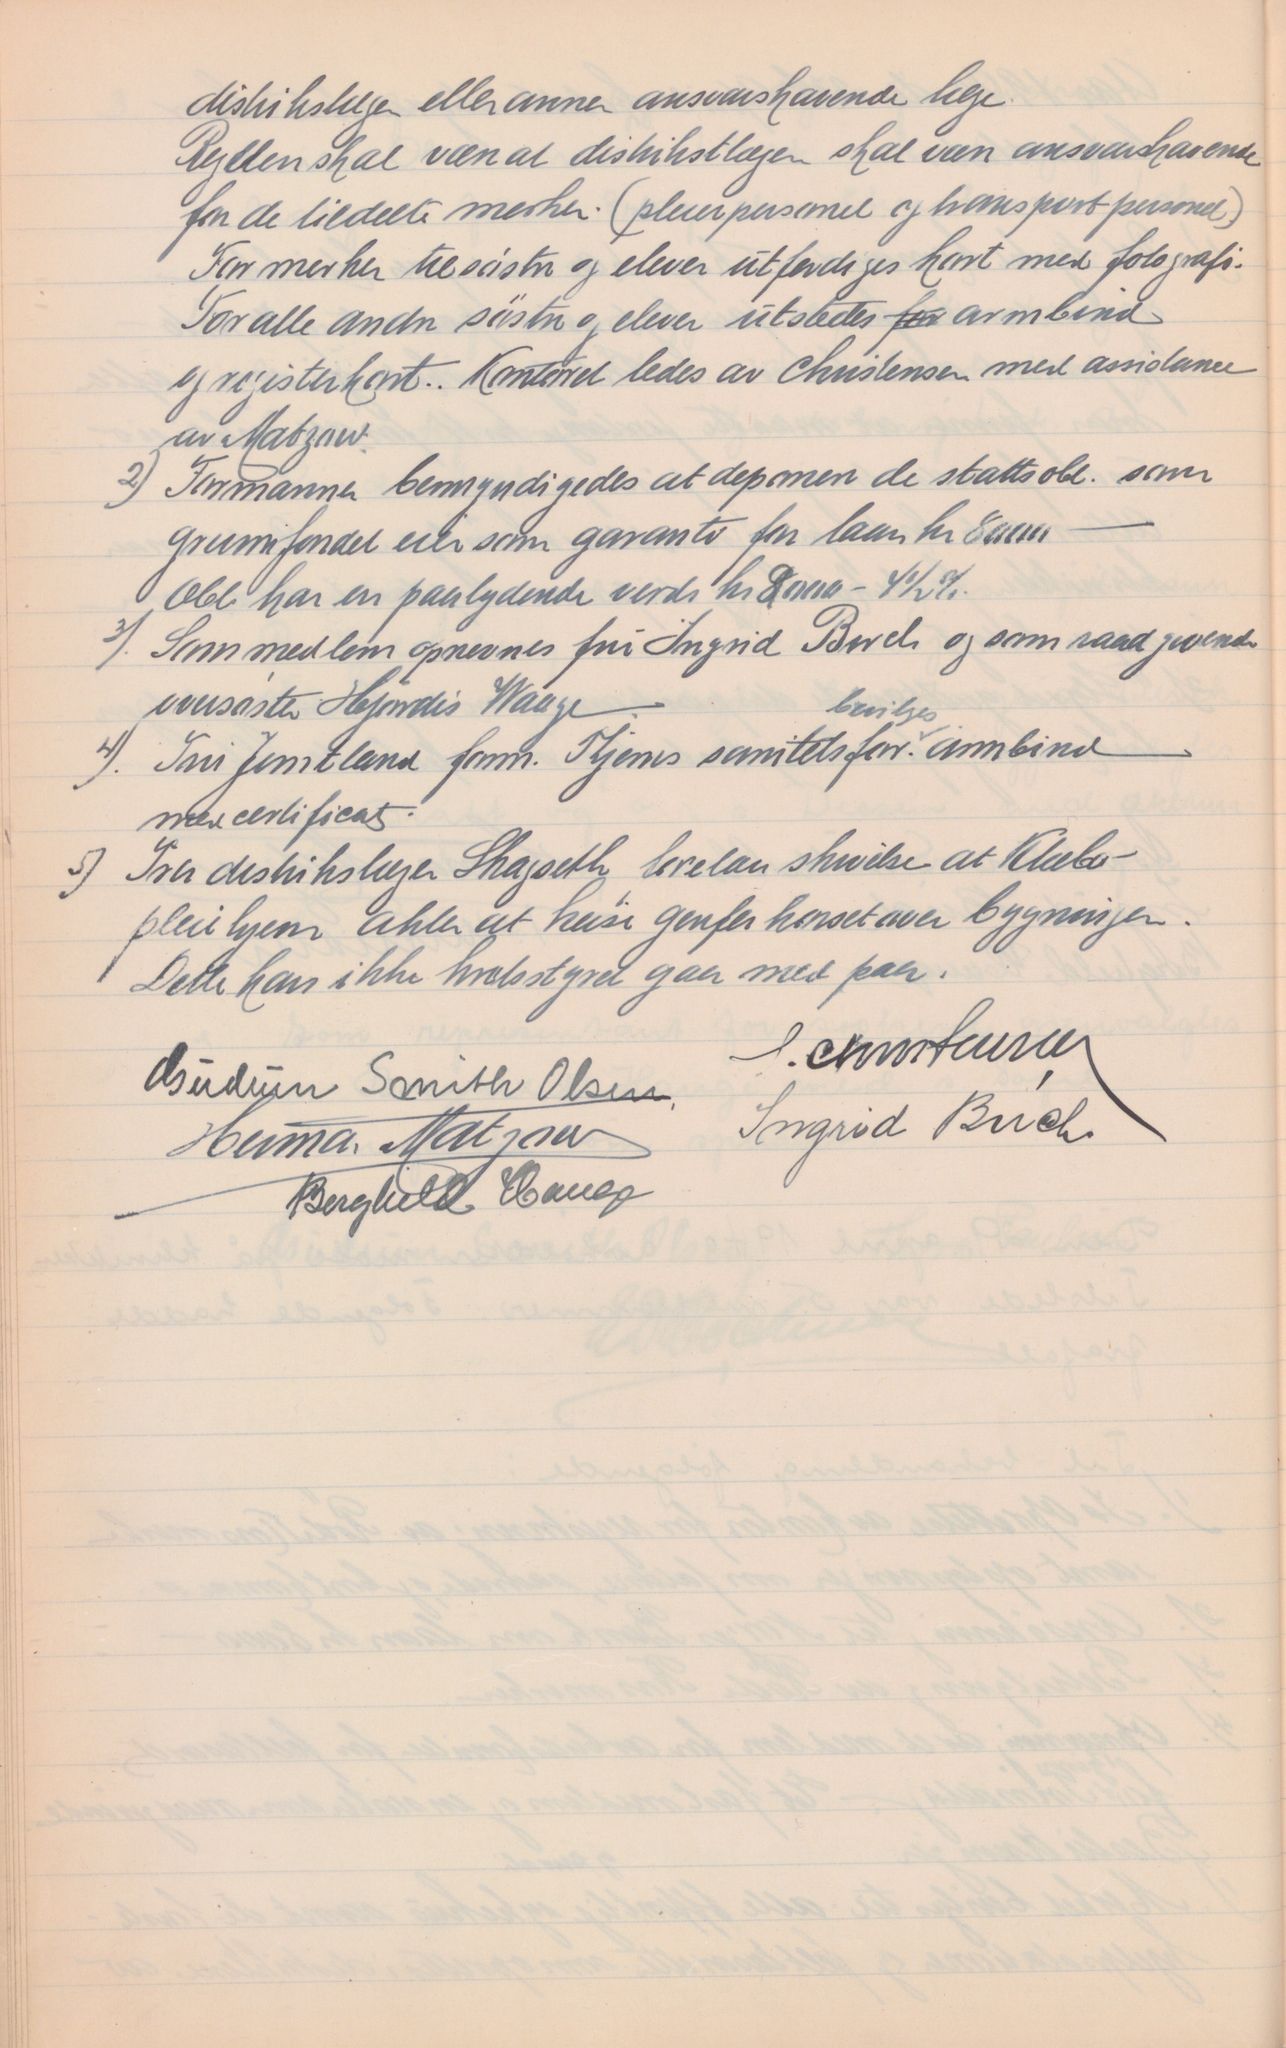 distriktslæge eller annen ansvarshavende læge.
Reglen skal være at distriktslægen skal være ansvarshavende
for de tildelte merker. (pleierpersonel og transport personel)
For merker til søstre og elever utferdiges kort med fotografi.
For alle andre søstre og elever utstedes for armbind
og registerkort. Kontoret ledes av Christensen med assistance
av Matzow.
2) Formannen bemyndigedes at deponere de stattsobl. som
grunnfondet eier som garanti for laan kr 8000 —
Obl. har en paalydende verdi kr 8000 - 4½%.
3). Som medlem opnevnes frü Ingrid Burch og som raadgivende
oversøster Hjørdis Waage
bevilges
4). Frü Jemtland form. Tjømes sanitetsfor. armbind
med certificat.
5) Fra distriktslæge Skagseth forelaa skrivelse at Klæbo-
pleiehjem akter at heise genferkorset over bygningen.
Dette kan ikke kretsstyret gaa med paa.
S. Christensen
Gudrün Smith Olsen.
Ingrid Burch.
Herma. Matzow
Berghild Hauge